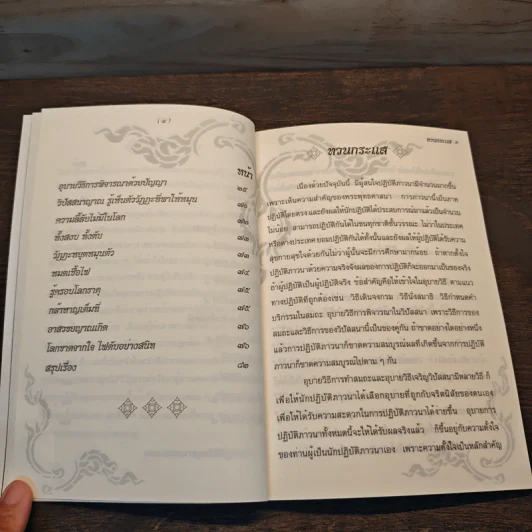 ( ๔ )
หน้า
อุบายวิธีการพิจารณาด้วยปัญญา ๒๕
วิปัสสนาญาณ รู้เห็นตัววัฏฏะที่พาให้หมุน
ความลี้ลับไม่มีในโลก
ทั้งสอบ ทั้งดับ
วัฏฏะหยุดหมุนตัว
หมดเชื้อไฟ
รู้ครอบโลกธาตุ
กล้าหาญเต็มที่
อาสวขยญาณเกิด
โลกขาดจากใจ ไฟดับอย่างสนิท
สรุปเรื่อง ๘๒
ทวนกระแส
ทวนกระแส
เนื่องด้วยปัจจุบันนี้ มีผู้สนใจปฏิบัติภาวนามีจำนวนมากขึ้น
เพราะเห็นความสำคัญของพระพุทธศาสนา การภาวนานี้เป็นภาค
ปฏิบัติโดยตรง และยังผลให้นักปฏิบัติได้ประสบการณ์มาแล้วเป็นจำนวน
ไม่น้อย สามารถปฏิบัติกันได้ในชนทุกชาติชั้นวรรณะ ไม่ว่าในประเทศ
หรือต่างประเทศ ยอมปฏิบัติกันได้ทั้งนั้นและยังผลให้ผู้ปฏิบัติได้รับความ
สุขกายสุขใจด้วยกันไม่ว่าผู้นั้นจะมีการศึกษามากน้อย ถ้าหากตั้งใจ
ปฏิบัติภาวนาด้วยความจริงจังผลของการปฏิบัติก็จะออกมาเป็นของจริง
ถ้าผู้ปฏิบัติเป็นผู้ปฏิบัติจริง ข้อสำคัญคือให้เข้าใจในอุบายวิธี ตามแนว
ทางปฏิบัติที่ถูกต้องเช่น วิธีเดินจงกรม วิธีนั่งสมาธิ วิธีกำหนดคำ
บริกรรมในสมถะ อุบายวิธีการพิจารณาในวิปัสสนา เพราะวิธีการของ
สมถะและวิธีการของวิปัสสนานี้เป็นของคู่กัน ถ้าขาดอย่างใดอย่างหนึ่ง
แล้วการปฏิบัติภาวนาก็ขาดความสมบูรณ์ผลที่เกิดขึ้นจากการปฏิบัติ
ภาวนาก็ขาดความสมบูรณ์ไปตาม ๆ กัน
อุบายวิธีการทำสมถะและอุบายวิธีเจริญวิปัสสนามีหลายวิธี ก็
เพื่อให้นักปฏิบัติภาวนาได้เลือกอุบายที่ถูกกับจริตนิสัยของตนเอง
เพื่อให้ได้รับความสะดวกในการปฏิบัติภาวนาได้ง่ายขึ้น อุบายการ
ปฏิบัติภาวนาทั้งหมดนี้จะให้ได้รับผลจริงแล้ว ก็ขึ้นอยู่กับความตั้งใจ
ของท่านผู้เป็นนักปฏิบัติภาวนาเอง เพราะความตั้งใจเป็นหลักสำคัญ